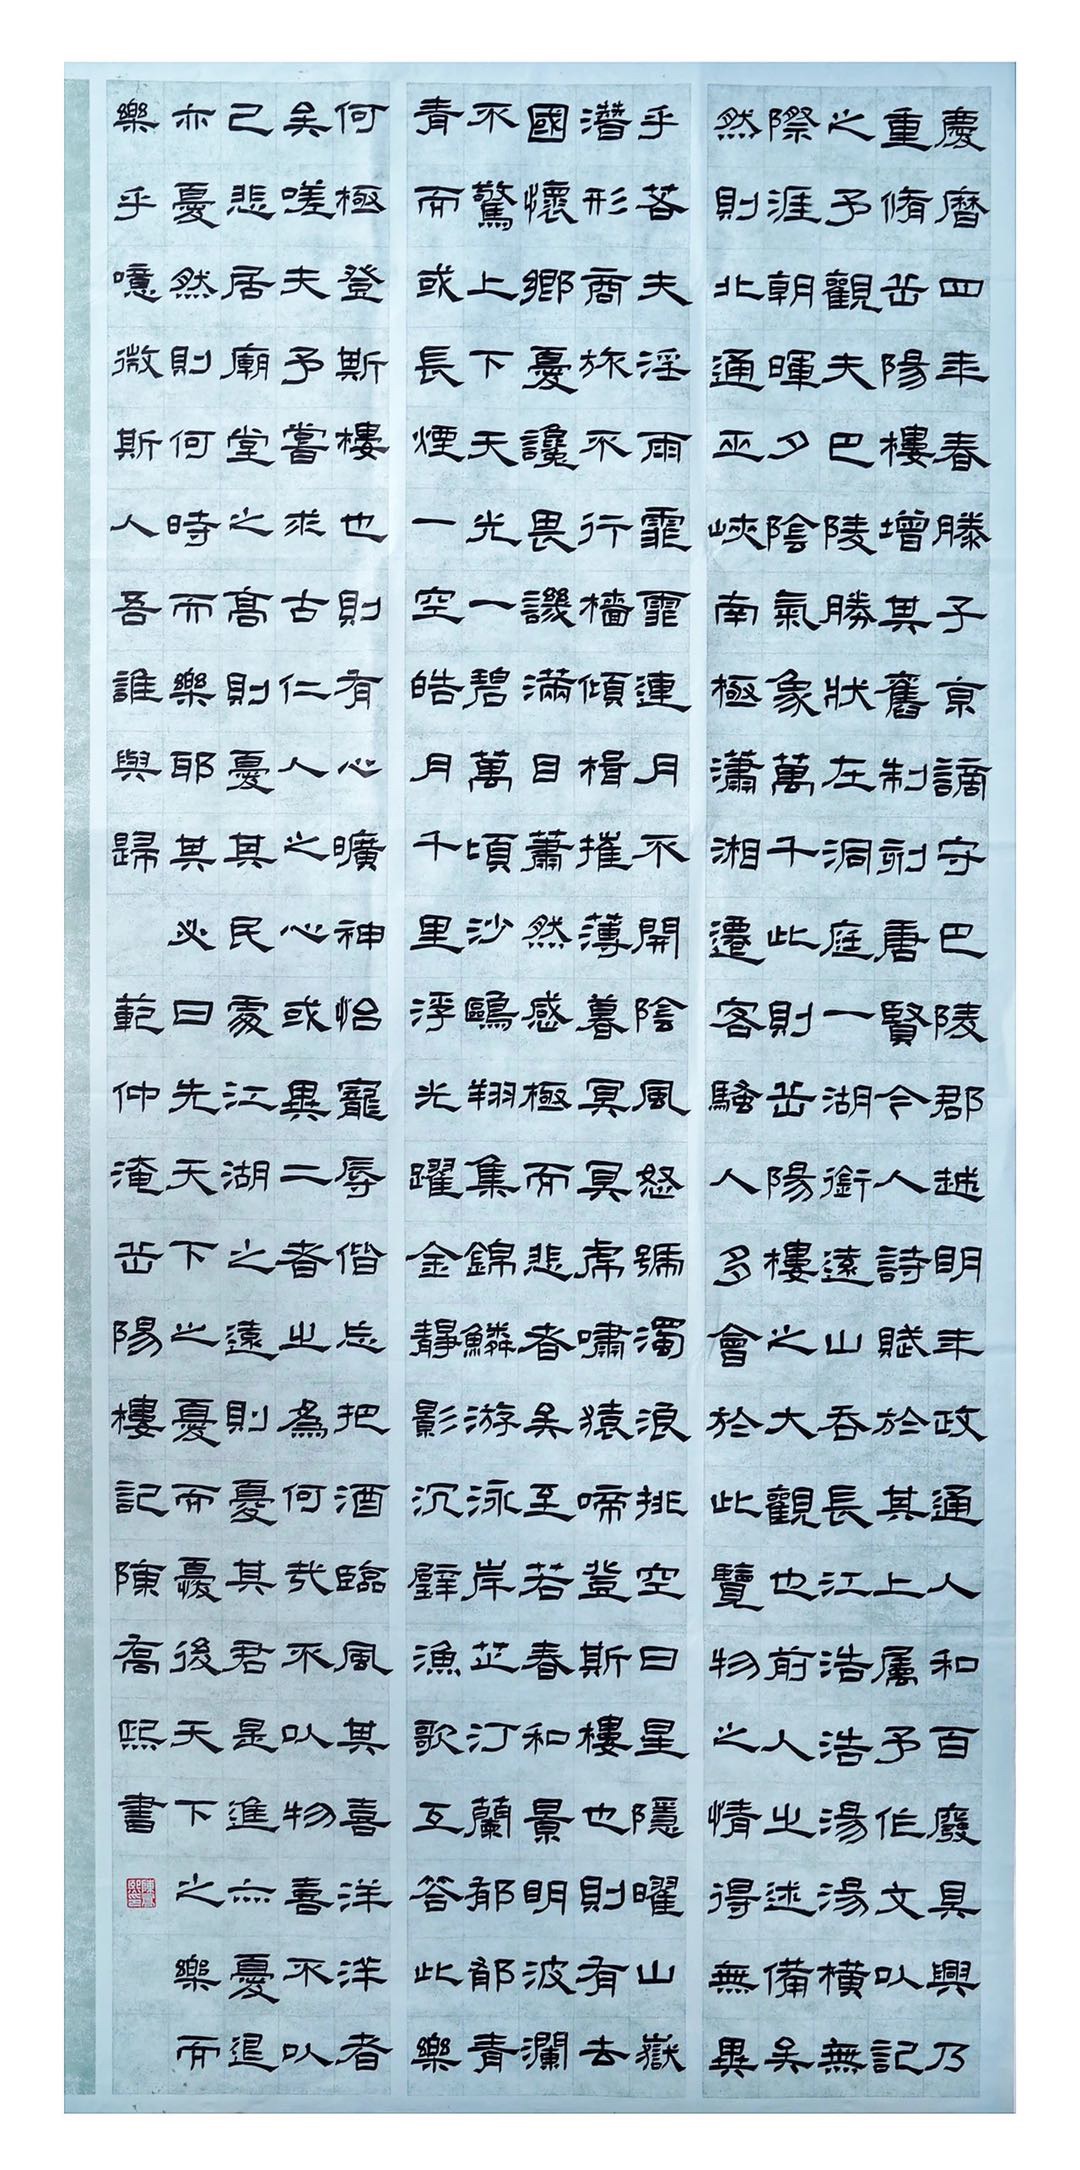 慶曆四年春滕子京謫守巴陵郡越明年政通人和百廢具興乃
重脩岳陽樓增其舊制刻唐賢今人詩賦於其上属予作文以記
之予觀夫巴陵勝狀在洞庭一湖銜遠山吞長江浩浩湯湯橫無
際涯朝暉夕陰氣象萬千此則岳陽樓之大觀也前人之述備矣
然則北通巫峽南極瀟湘遷客騷人多會於此覽物之情得無異
乎若夫淫雨霏霏連月不開陰風怒號濁浪排空日星隱曜山嶽
潛形商旅不行檣傾楫摧薄暮冥冥虎嘯猿啼登斯樓也則有去
國懷鄉憂讒畏譏滿目蕭然感極而悲者矣至若春和景明波瀾
不驚上下天光一碧萬頃沙鷗翔集錦鱗游泳岸芷汀蘭郁郁青
青而或長煙一空皓月千里浮光躍金靜影沉璧漁歌互答此樂
何極登斯樓也則有心曠神怡寵辱偕忘把酒臨風其喜洋洋者
矣嗟夫予嘗求古仁人之心或異二者之為何哉不以物喜不以
己悲居廟堂之高則憂其民處江湖之遠則憂其君是進亦憂退
亦憂然則何時而樂耶其必曰先天下之憂而憂後天下之樂而
樂乎噫微斯人吾誰與歸 範仲淹岳陽樓記陳喬熙書
陳喬熙印